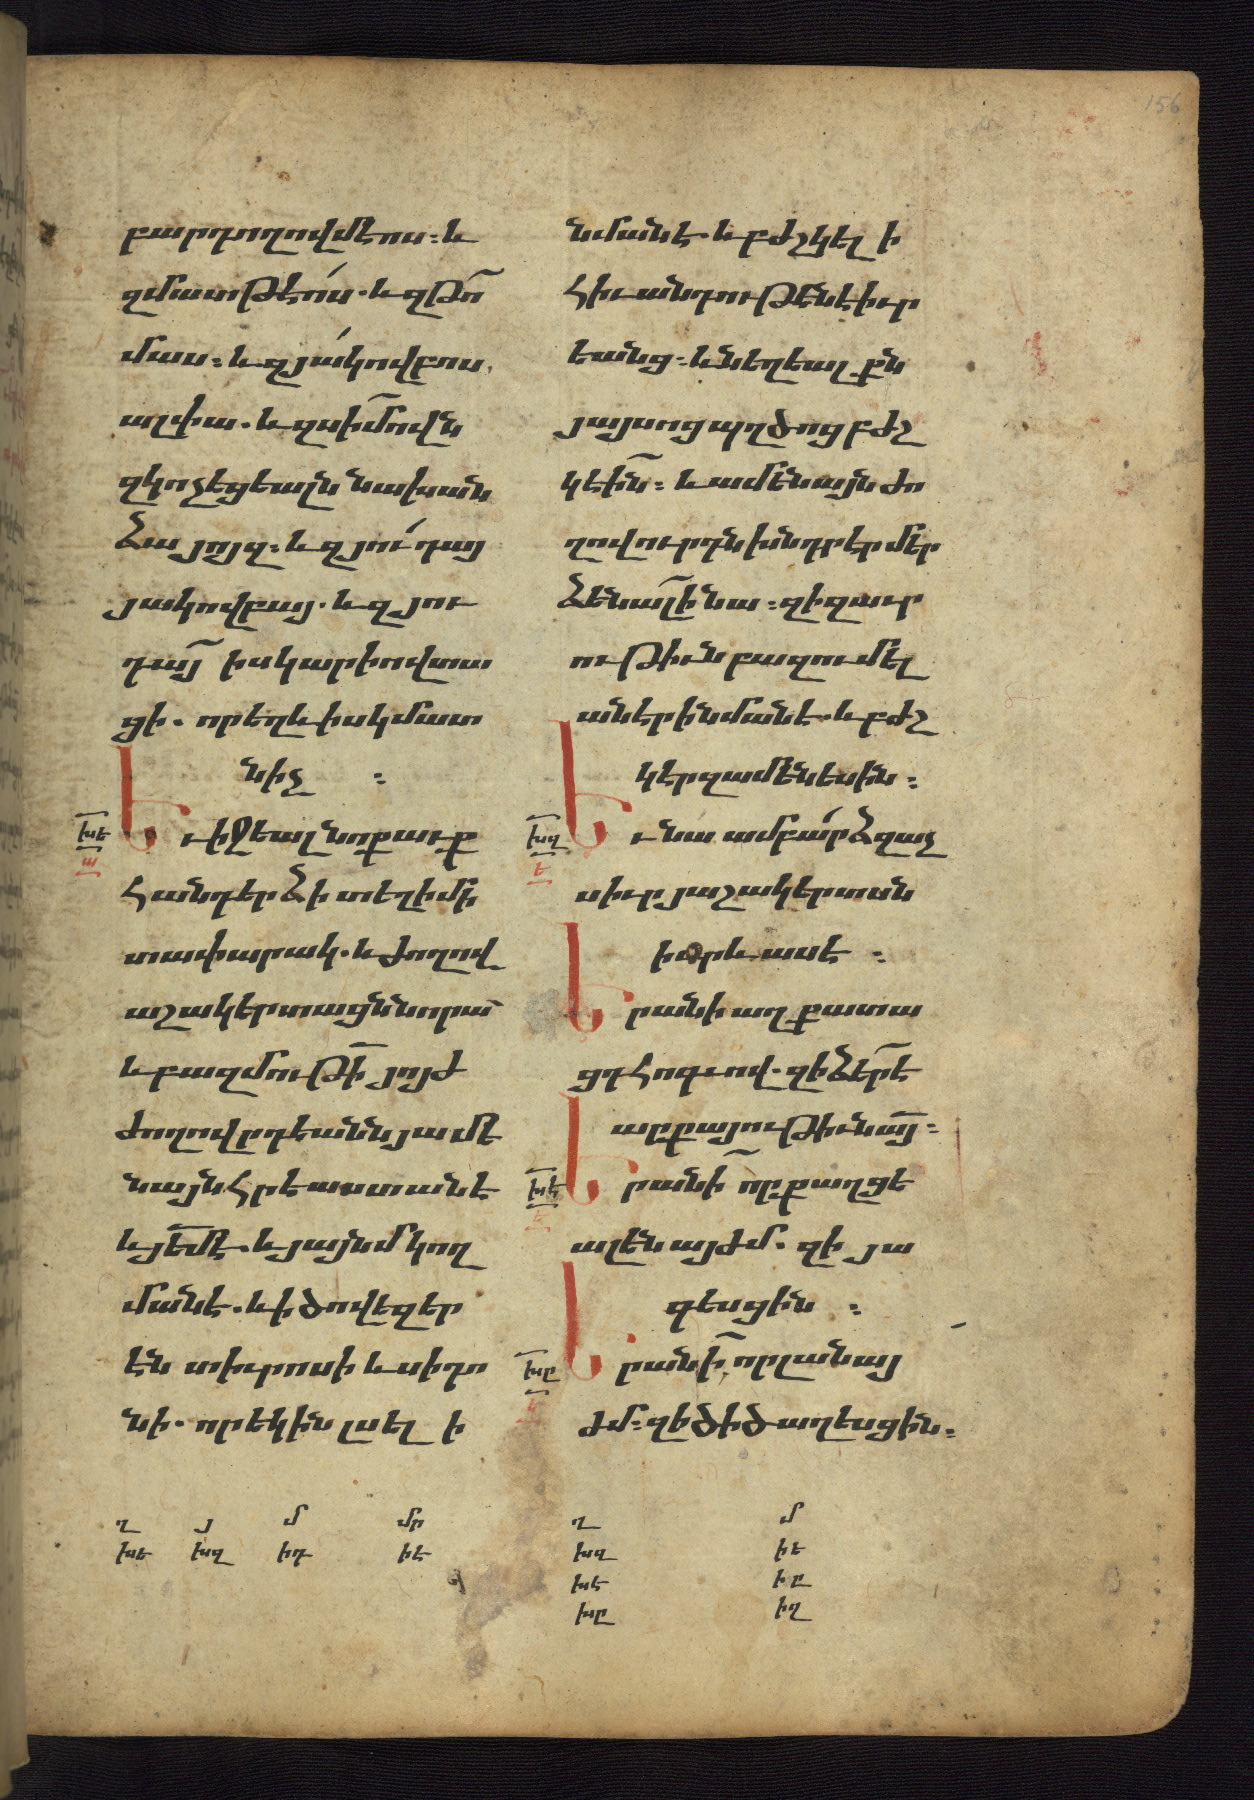 156
բարդողովմէոս։ և
զմատթէոս. և զթո
մաս։ և զյակովբոս
աղփա. և զսիմովն
զկոչեցեալն նախան
ձայոյզ։ և զյուդայ
յակովբայ. և զյու
դայ իսկարիովտա
ցի. որ եղև իսկ մատ
նիչ ։
Եւ իջեալ նոքաւք
հանդերձ ի տեղի մի
տափարակ. և ժողով
աշակերտացն նորա
և բազմութի յոյժ
ժողովրդեանն յամե
նայն հրեաստանէ
և յեմէ. և յայնմ կող
մանէ. և ի ծովեզեր
էն տիւրոսի և սիդո
նի. որ եկին լսել ի
նմանէ. և բժշկել ի
հիւանդութենէ իւր
եանց։ և նեղեալքն
յայսոց պղծոց բժշ
կեին։ և ամենայն ժո
ղովուրդն խնդրէր մեր
ձենալ ի նա։ զի զաւր
ութիւն բազում ել
անէր ի նմանէ. և բժշ
կէր զամենեսին։
Եւ նա ամբարձ զաչ
ս իւր յաշակերտսն
իւր և ասէ ։
Երանի աղքատա
ցդ հոգւով. զի ձեր է
արքայութիւն այ։
Երանի որ քաղցե
ալ էն այժմ. զի յա
գեսցին ։
Երանի որ լան այ
ժմ։ զի ծիծաղեսցին։
խե
ա
խզ
ե
խէ
ե
խը
ե
ղ յ մ մր
խե խզ իդ իէ
ղ մ
խզ իե
խէ իը
խը իղ